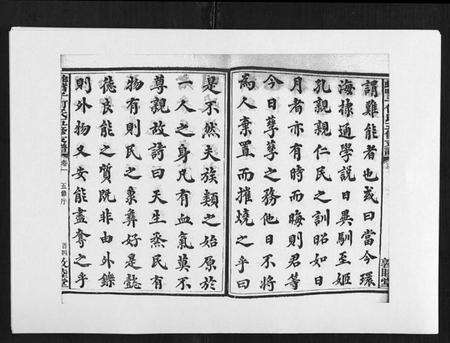 謂難能者也或曰當今環
海棣通學說日異馴至姬
孔親親仁民之訓昭如日
月者亦有時而晦則君等
今日孳孳之務他日不將
為人棄置而摧燒之乎曰
敦睦堂
是不然夫族類之始原於
一人之身凡有血氣莫不
尊親故詩曰天生烝民有
物有則民之秉彝好是懿
德良能之質既非由外鑠
則外物又安能盡奪之乎
卷一
五修序
百四
敦睦堂